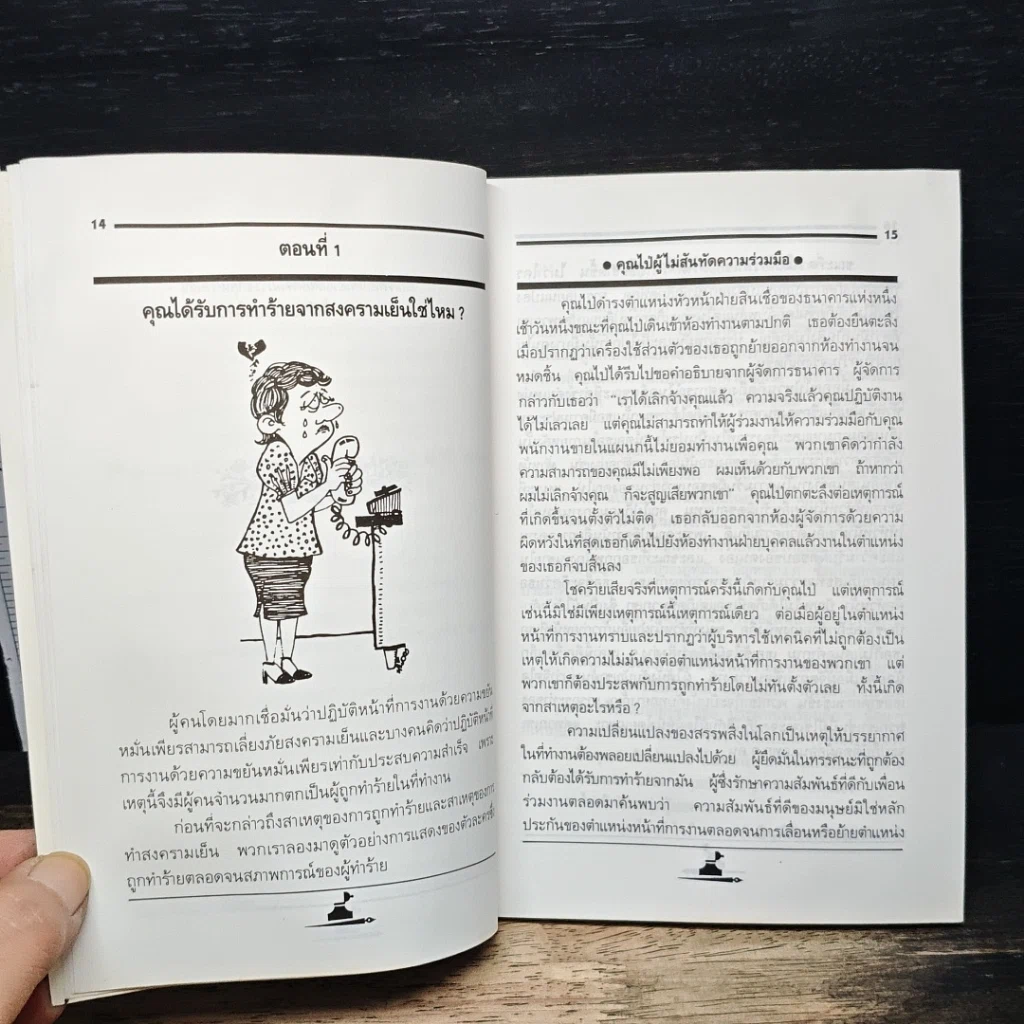 14
ตอนที่ 1
คุณได้รับการทำร้ายจากสงครามเย็นใช่ไหม ?
ผู้คนโดยมากเชื่อมั่นว่าปฏิบัติหน้าที่การงานด้วยความขยัน
หมั่นเพียรสามารถเลี่ยงภัยสงครามเย็นและบางคนคิดว่าปฏิบัติหน้าที่
การงานด้วยความขยันหมั่นเพียรเท่ากับประสบความสำเร็จ เพราะ
เหตุนี้จึงมีผู้คนจำนวนมากตกเป็นผู้ถูกทำร้ายในที่ทำงาน
ก่อนที่จะกล่าวถึงสาเหตุของการถูกทำร้ายและสาเหตุของการ
ทำสงครามเย็น พวกเราลองมาดูตัวอย่างการแสดงของตัวละครซึ่ง
ถูกทำร้ายตลอดจนสภาพการณ์ของผู้ทำร้าย
15
● คุณไป๋ผู้ไม่สันทัดความร่วมมือ ●
คุณไป๋ดำรงตำแหน่งหัวหน้าฝ่ายสินเชื่อของธนาคารแห่งหนึ่ง
เช้าวันหนึ่งขณะที่คุณไป๋เดินเข้าห้องทำงานตามปกติ เธอต้องยืนตะลึง
เมื่อปรากฏว่าเครื่องใช้ส่วนตัวของเธอถูกย้ายออกจากห้องทำงานจน
หมดซิ้น คุณไป๋ได้รีบไปขอคำอธิบายจากผู้จัดการธนาคาร ผู้จัดการ
กล่าวกับเธอว่า "เราได้เลิกจ้างคุณแล้ว ความจริงแล้วคุณปฏิบัติงาน
ได้ไม่เลวเลย แต่คุณไม่สามารถทำให้ผู้ร่วมงานให้ความร่วมมือกับคุณ
พนักงานขายในแผนกนี้ไม่ยอมทำงานเพื่อคุณ พวกเขาคิดว่ากำลัง
ความสามารถของคุณมีไม่เพียงพอ ผมเห็นด้วยกับพวกเขา ถ้าหากว่า
ผมไม่เลิกจ้างคุณ ก็จะสูญเสียพวกเขา" คุณไป๋ตกตะลึงต่อเหตุการณ์
ที่เกิดขึ้นจนตั้งตัวไม่ติด เธอกลับออกจากห้องผู้จัดการด้วยความ
ผิดหวังในที่สุดเธอก็เดินไปยังห้องทำงานฝ่ายบุคคลแล้วงานในตำแหน่ง
ของเธอก็จบสิ้นลง
โชคร้ายเสียจริงที่เหตุการณ์ครั้งนี้เกิดกับคุณไป๋ แต่เหตุการณ์
เช่นนี้มิใช่มีเพียงเหตุการณ์นี้เหตุการณ์เดียว ต่อเมื่อผู้อยู่ในตำแหน่ง
หน้าที่การงานทราบและปรากฏว่าผู้บริหารใช้เทคนิคที่ไม่ถูกต้องเป็น
เหตุให้เกิดความไม่มั่นคงต่อตำแหน่งหน้าที่การงานของพวกเขา แต่
พวกเขาก็ต้องประสพกับการถูกทำร้ายโดยไม่ทันตั้งตัวเลย ทั้งนี้เกิด
จากสาเหตุอะไรหรือ ?
ความเปลี่ยนแปลงของสรรพสิ่งในโลกเป็นเหตุให้บรรยากาศ
ในที่ทำงานต้องพลอยเปลี่ยนแปลงไปด้วย ผู้ยึดมั่นในทรรศนะที่ถูกต้อง
กลับต้องได้รับการทำร้ายจากมัน ผู้ซึ่งรักษาความสัมพันธ์ที่ดีกับเพื่อน
ร่วมงานตลอดมาค้นพบว่า ความสัมพันธ์ที่ดีของมนุษย์มิใช่หลัก
ประกันของตำแหน่งหน้าที่การงานตลอดจนการเลื่อนหรือย้ายตำแหน่ง